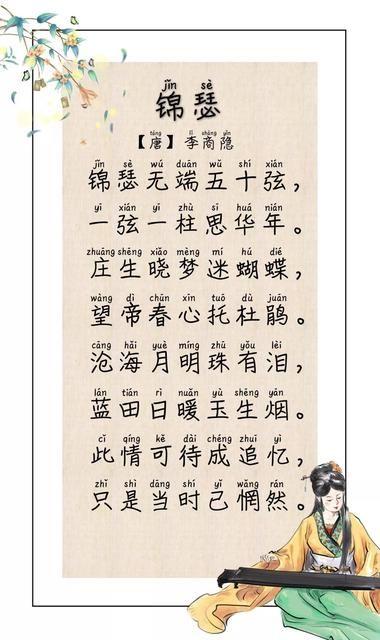 jǐn sè
锦瑟
táng lǐ shāng yǐn
【唐】李商隐
jǐn sè wú duān wǔ shí xián
锦瑟无端五十弦，
yì xián yí zhù sī huá nián
一弦一柱思华年。
zhuāng shēng xiǎo mèng mí hú dié
庄生晓梦迷蝴蝶，
wàng dì chūn xīn tuō dù juān
望帝春心托杜鹃。
cāng hǎi yuè míng zhū yǒu lèi
沧海月明珠有泪，
lán tián rì nuǎn yù shēng yān
蓝田日暖玉生烟。
cǐ qíng kě dài chéng zhuī yì
此情可待成追忆，
zhǐ shì dāng shí yǐ wǎng rán
只是当时已惘然。